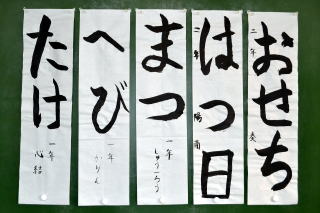 おせち
二年
葵
はつ日
二年
陽南
まつ
一年
しゅういちろう
へび
一年
かりん
たけ
一年
心結